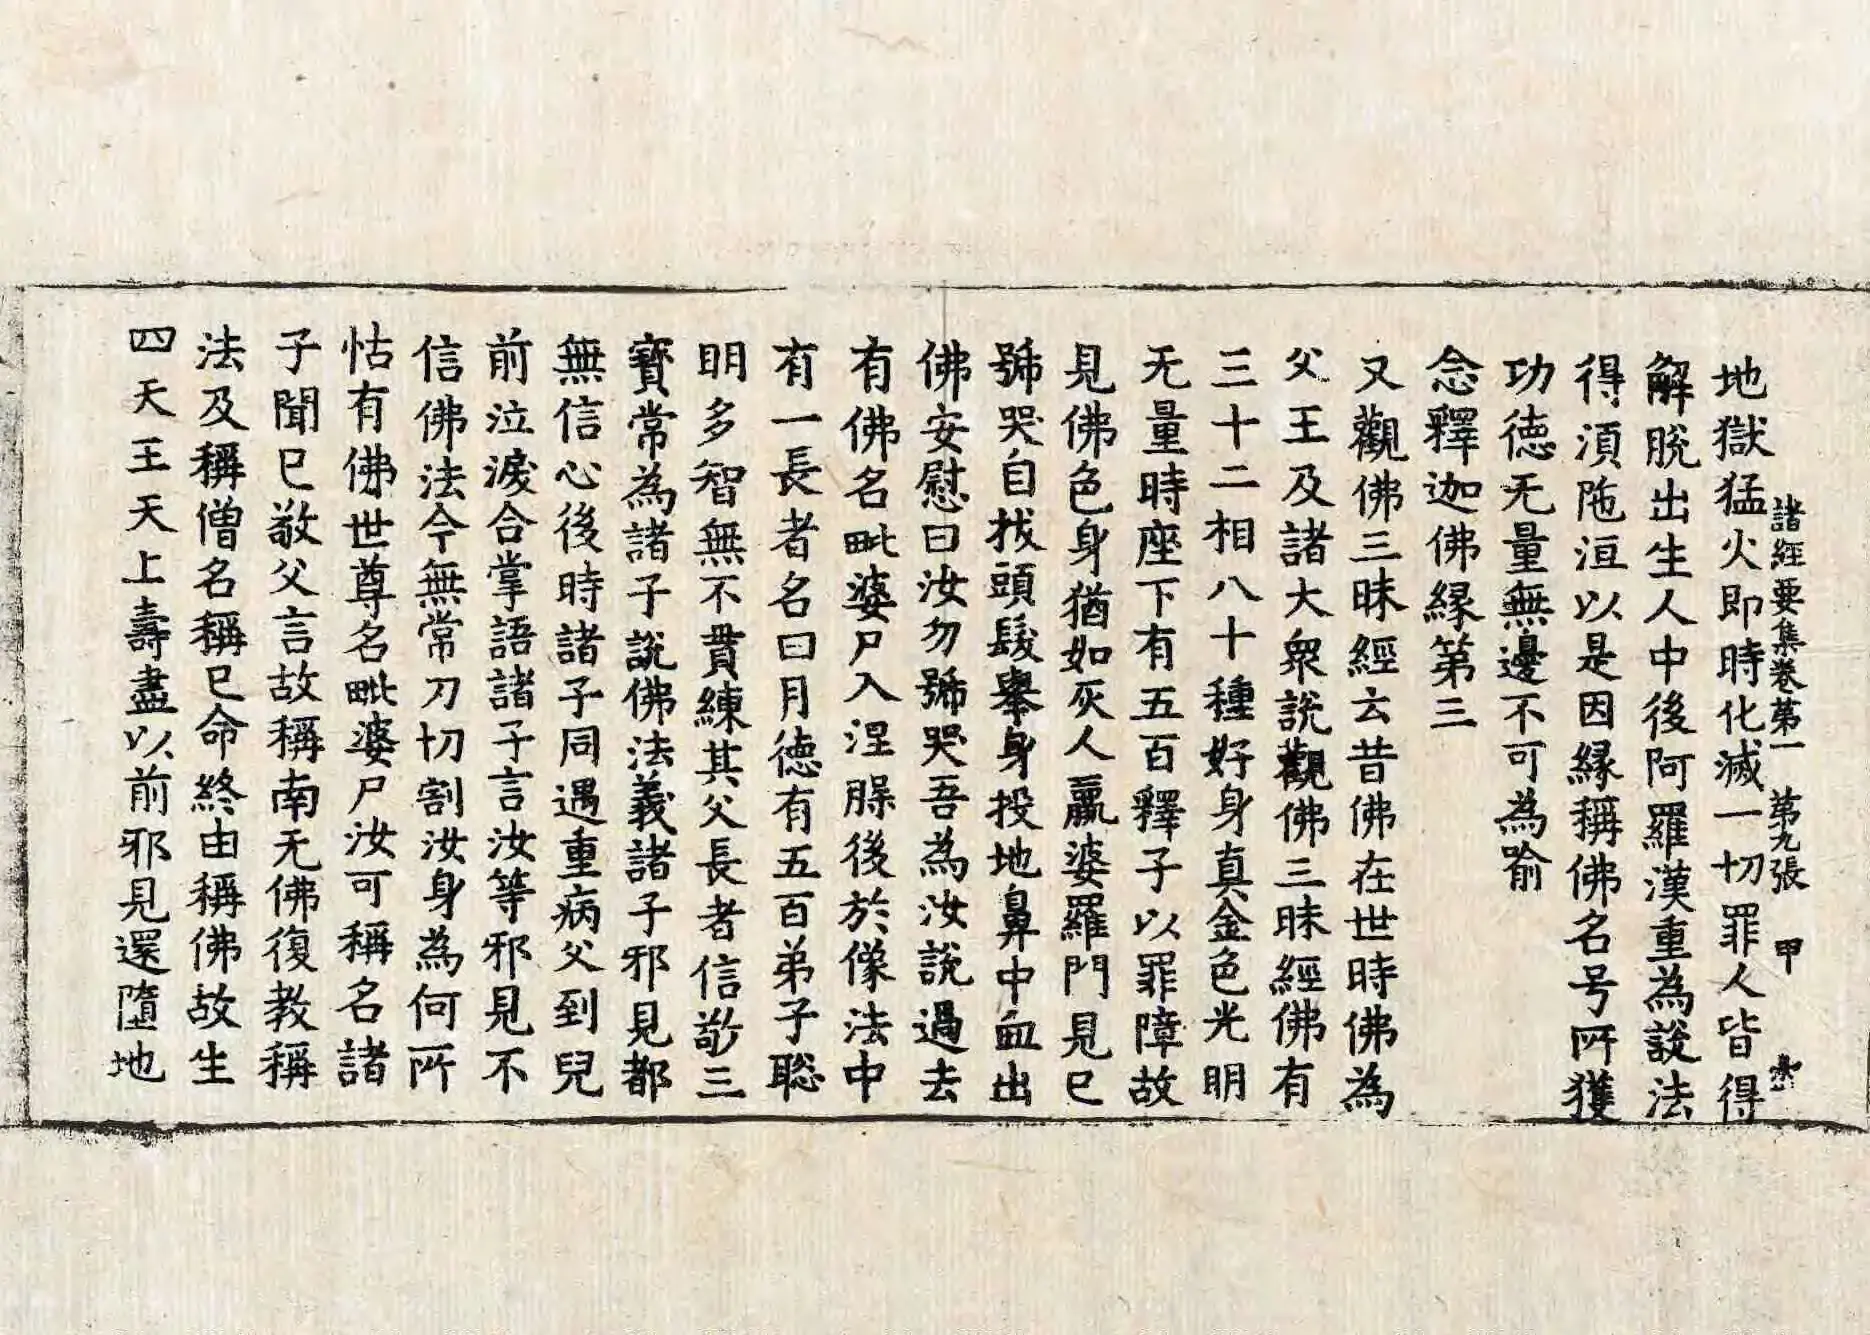 諸經要集卷第一 第九張 甲
地獄猛火即時化滅一切罪人皆得
解脫出生人中後阿羅漢重為說法
得湏陁洹以是因縁稱佛名号所獲
功德无量無邊不可為喻
念釋迦佛縁第三
又觀佛三昧經云昔佛在世時佛為
父王及諸大衆說觀佛三昧經佛有
三十二相八十種好身真金色光明
无量時座下有五百釋子以罪障故
見佛色身猶如灰人羸婆羅門見已
號哭自拔頭髮舉身投地鼻中血出
佛安慰曰汝勿號哭吾為汝說過去
有佛名毗婆尸入涅槃後於像法中
有一長者名曰月德有五百弟子聡
明多智無不貫練其父長者信敬三
寶常為諸子說佛法義諸子邪見都
無信心後時諸子同遇重病父到兒
前泣淚合掌語諸子言汝等邪見不
信佛法今無常刀切割汝身為何所
怙有佛世尊名毗婆尸汝可稱名諸
子聞已敬父言故稱南无佛復教稱
法及稱僧名稱已命終由稱佛故生
四天王天上壽盡以前邪見還墮地